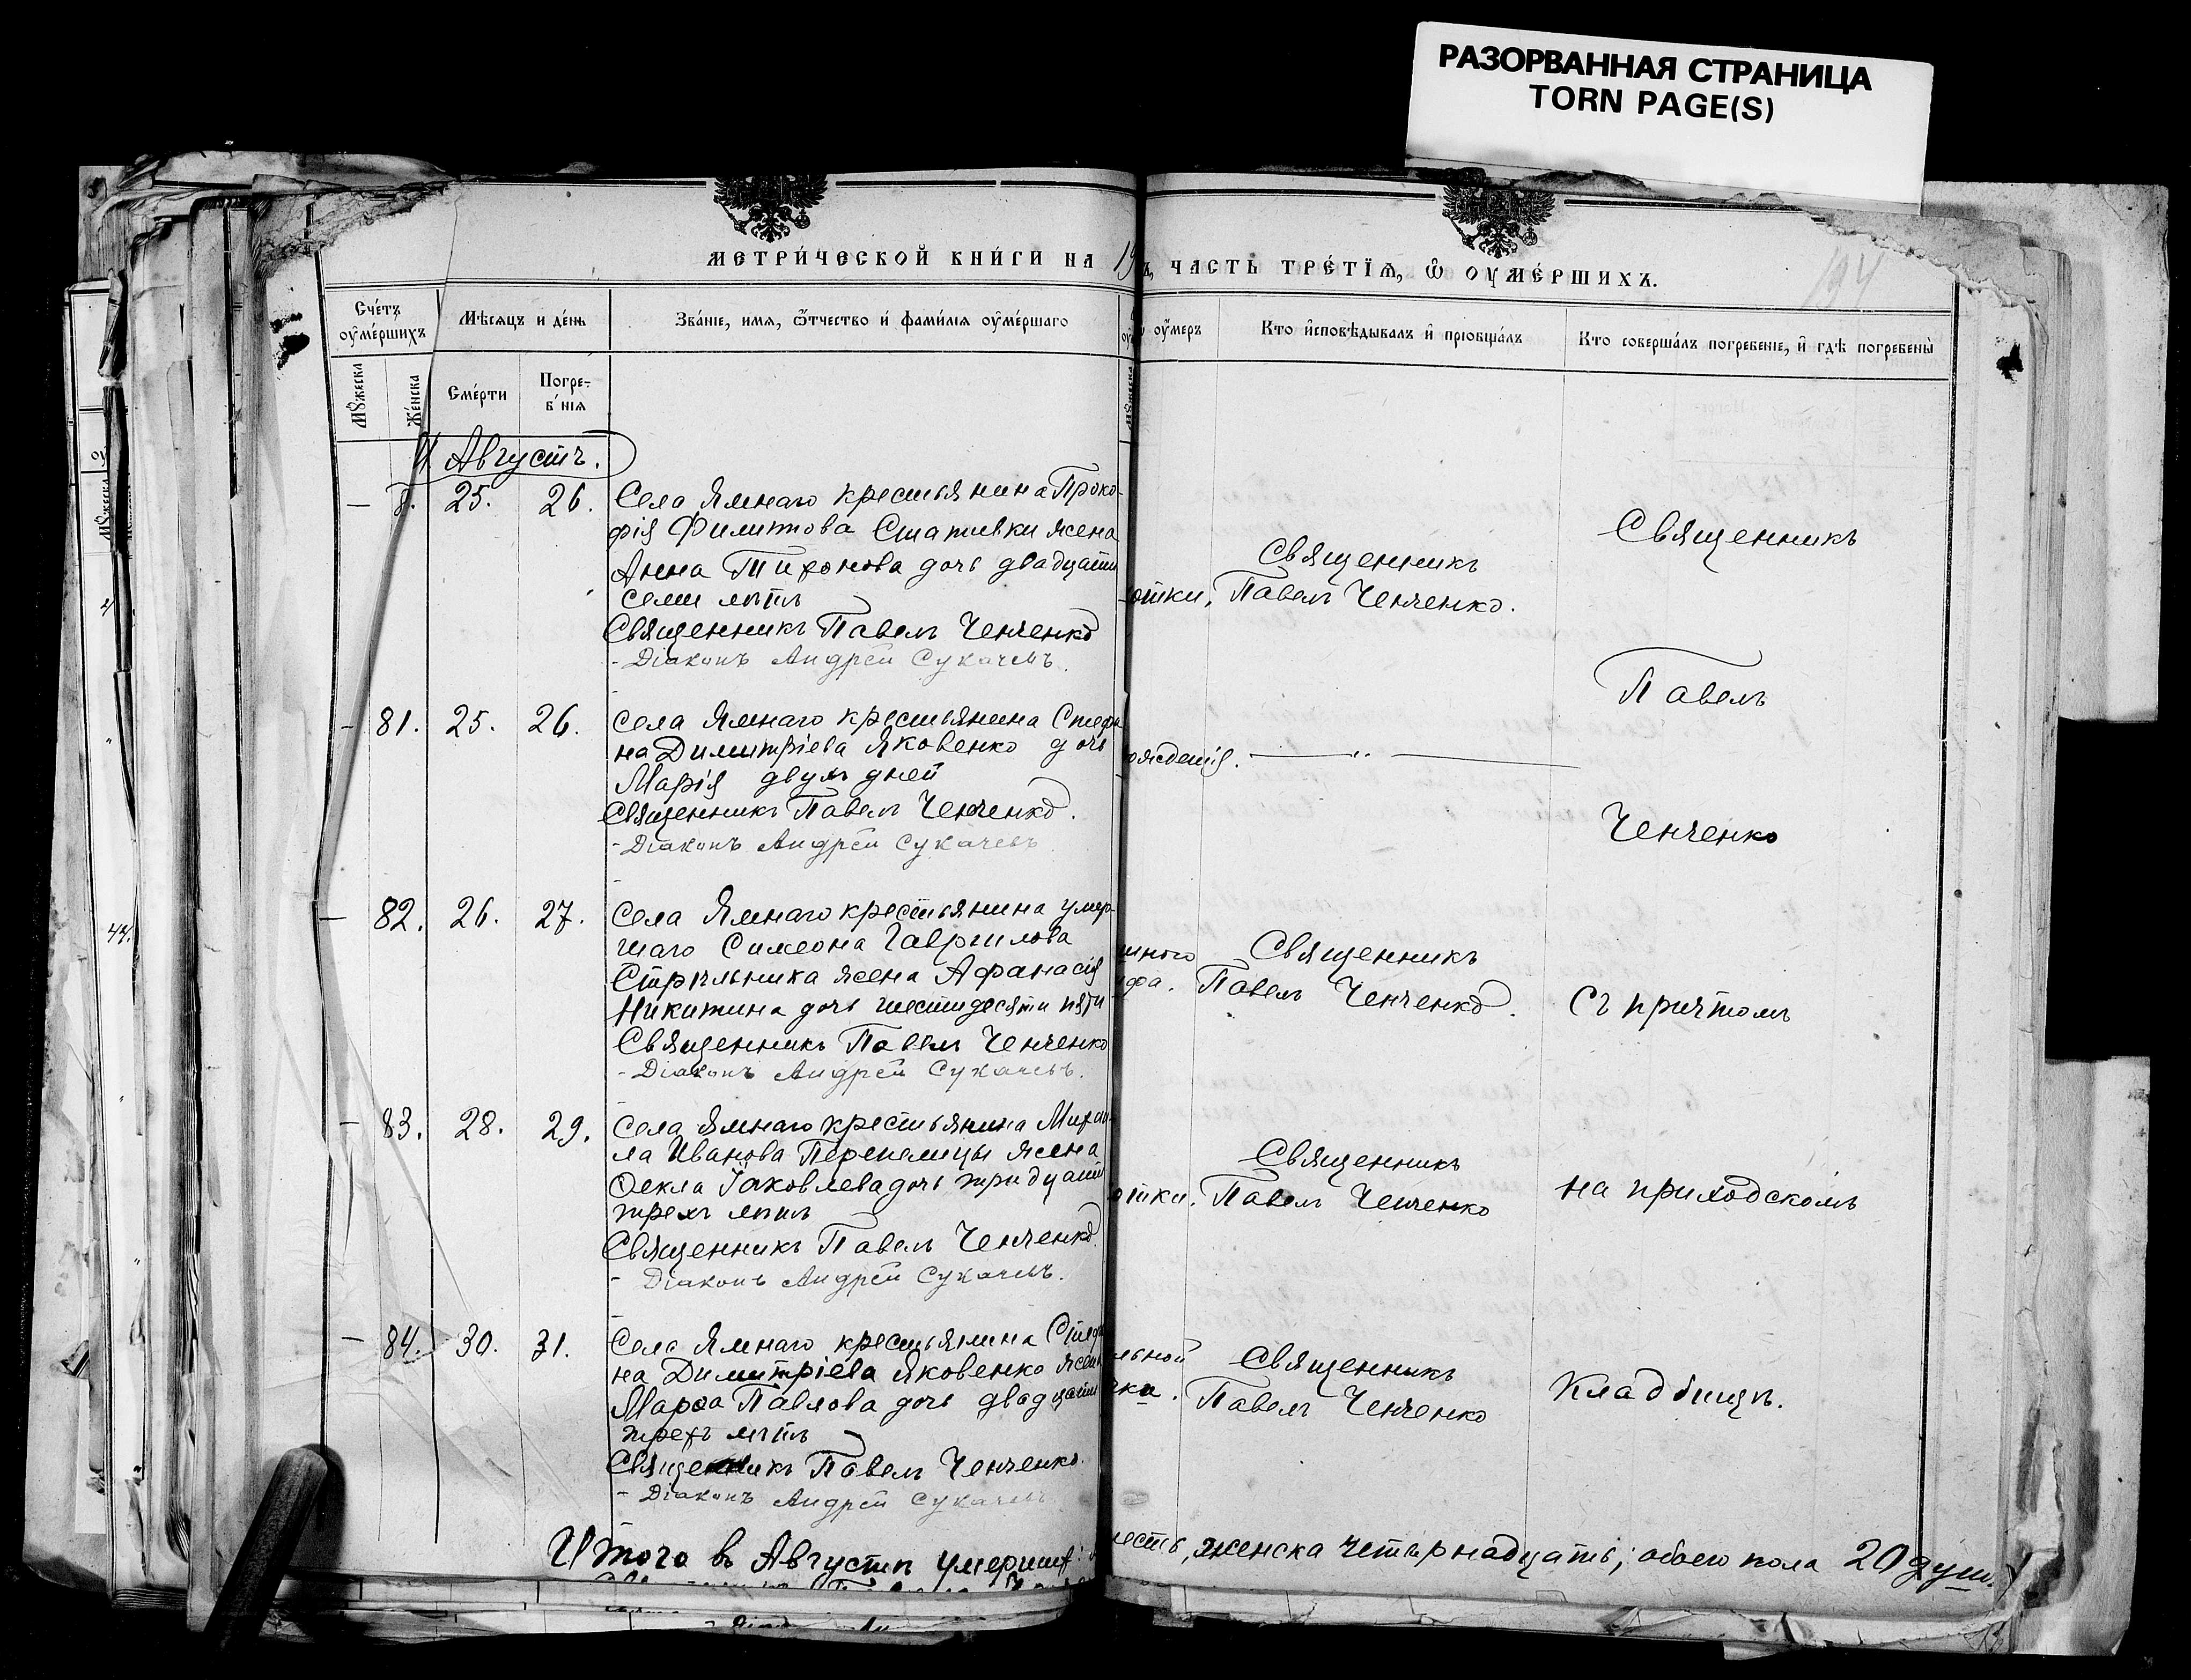 РАЗОРВАННАЯ СТРАНИЦА
TORN PAGE(S)
МЕТРИ́ЧЕСКОЙ КНИ́ГИ НА 19
Ъ, ЧАСТЬ ТРЕ́ТЇѦ, Ѡ ОУМЕ́РШИХЪ.
194
Сче́тъ оумѐршихъ
Мѣсяцъ и де́нь
Зва́нїе, имя, ѻ҆́тчество и҆ фами́лїя оумѐршаго
оумеръ
Кто и҆сповѣ́дывалъ и҆ прїобща́лъ
Кто соверша́лъ погребе́нїе, и҆ гдѣ̀ погребены̀
Мꙋжеска
Же́нска
Сме́рти
Погре-
б́нїя
Августъ.
— 25. 26. Села Ямнаго крестьянина Проко-
фія Филиппова Стативки жена
Анна Тихонова дочь двадцати
семи лѣтъ
Священникъ Павелъ Ченченко
- Діаконъ Андрей Сукачевъ.
отки. Священникъ
Павелъ Ченченко.
— 81. 25. 26. Села Ямнаго крестьянина Стефа-
на Димитріева Яковенко дочь
Марія двухъ дней
Священникъ Павелъ Ченченко.
- Діаконъ Андрей Сукачевъ
ожденія. — „ —
— 82. 26. 27. Села Ямнаго крестьянина умер-
шаго Симеона Гавриилова
Стрѣльника жена Афанасія
Никитина дочь шестидесяти пяти
Священникъ Павелъ Ченченко
- Діаконъ Андрей Сукачевъ.
шного
ифа. Священникъ
Павелъ Ченченко.
— 83. 28. 29. Села Ямнаго крестьянина Михаи-
ла Иванова Перепелицы жена
Ѳекла Іаковлева дочь тридцати
трехъ лѣтъ
Священникъ Павелъ Ченченко.
- Діаконъ Андрей Сукачевъ.
отки. Священникъ
Павелъ Ченченко
— 84. 30. 31. Села Ямнаго крестьянина Стефа
на Димитріева Яковенко жена
Марѳа Павлова дочь двадцати
трехъ лѣтъ
Священникъ Павелъ Ченченко.
- Діаконъ Андрей Сукачевъ
льной
Священникъ
Павелъ Ченченко
Священникъ
Павелъ
Ченченко
Съ причтомъ
на приходскомъ
Кладбищѣ.
Итого въ Августѣ умершихъ:
шесть, женска четырнадцать; обоего пола 20 душ.